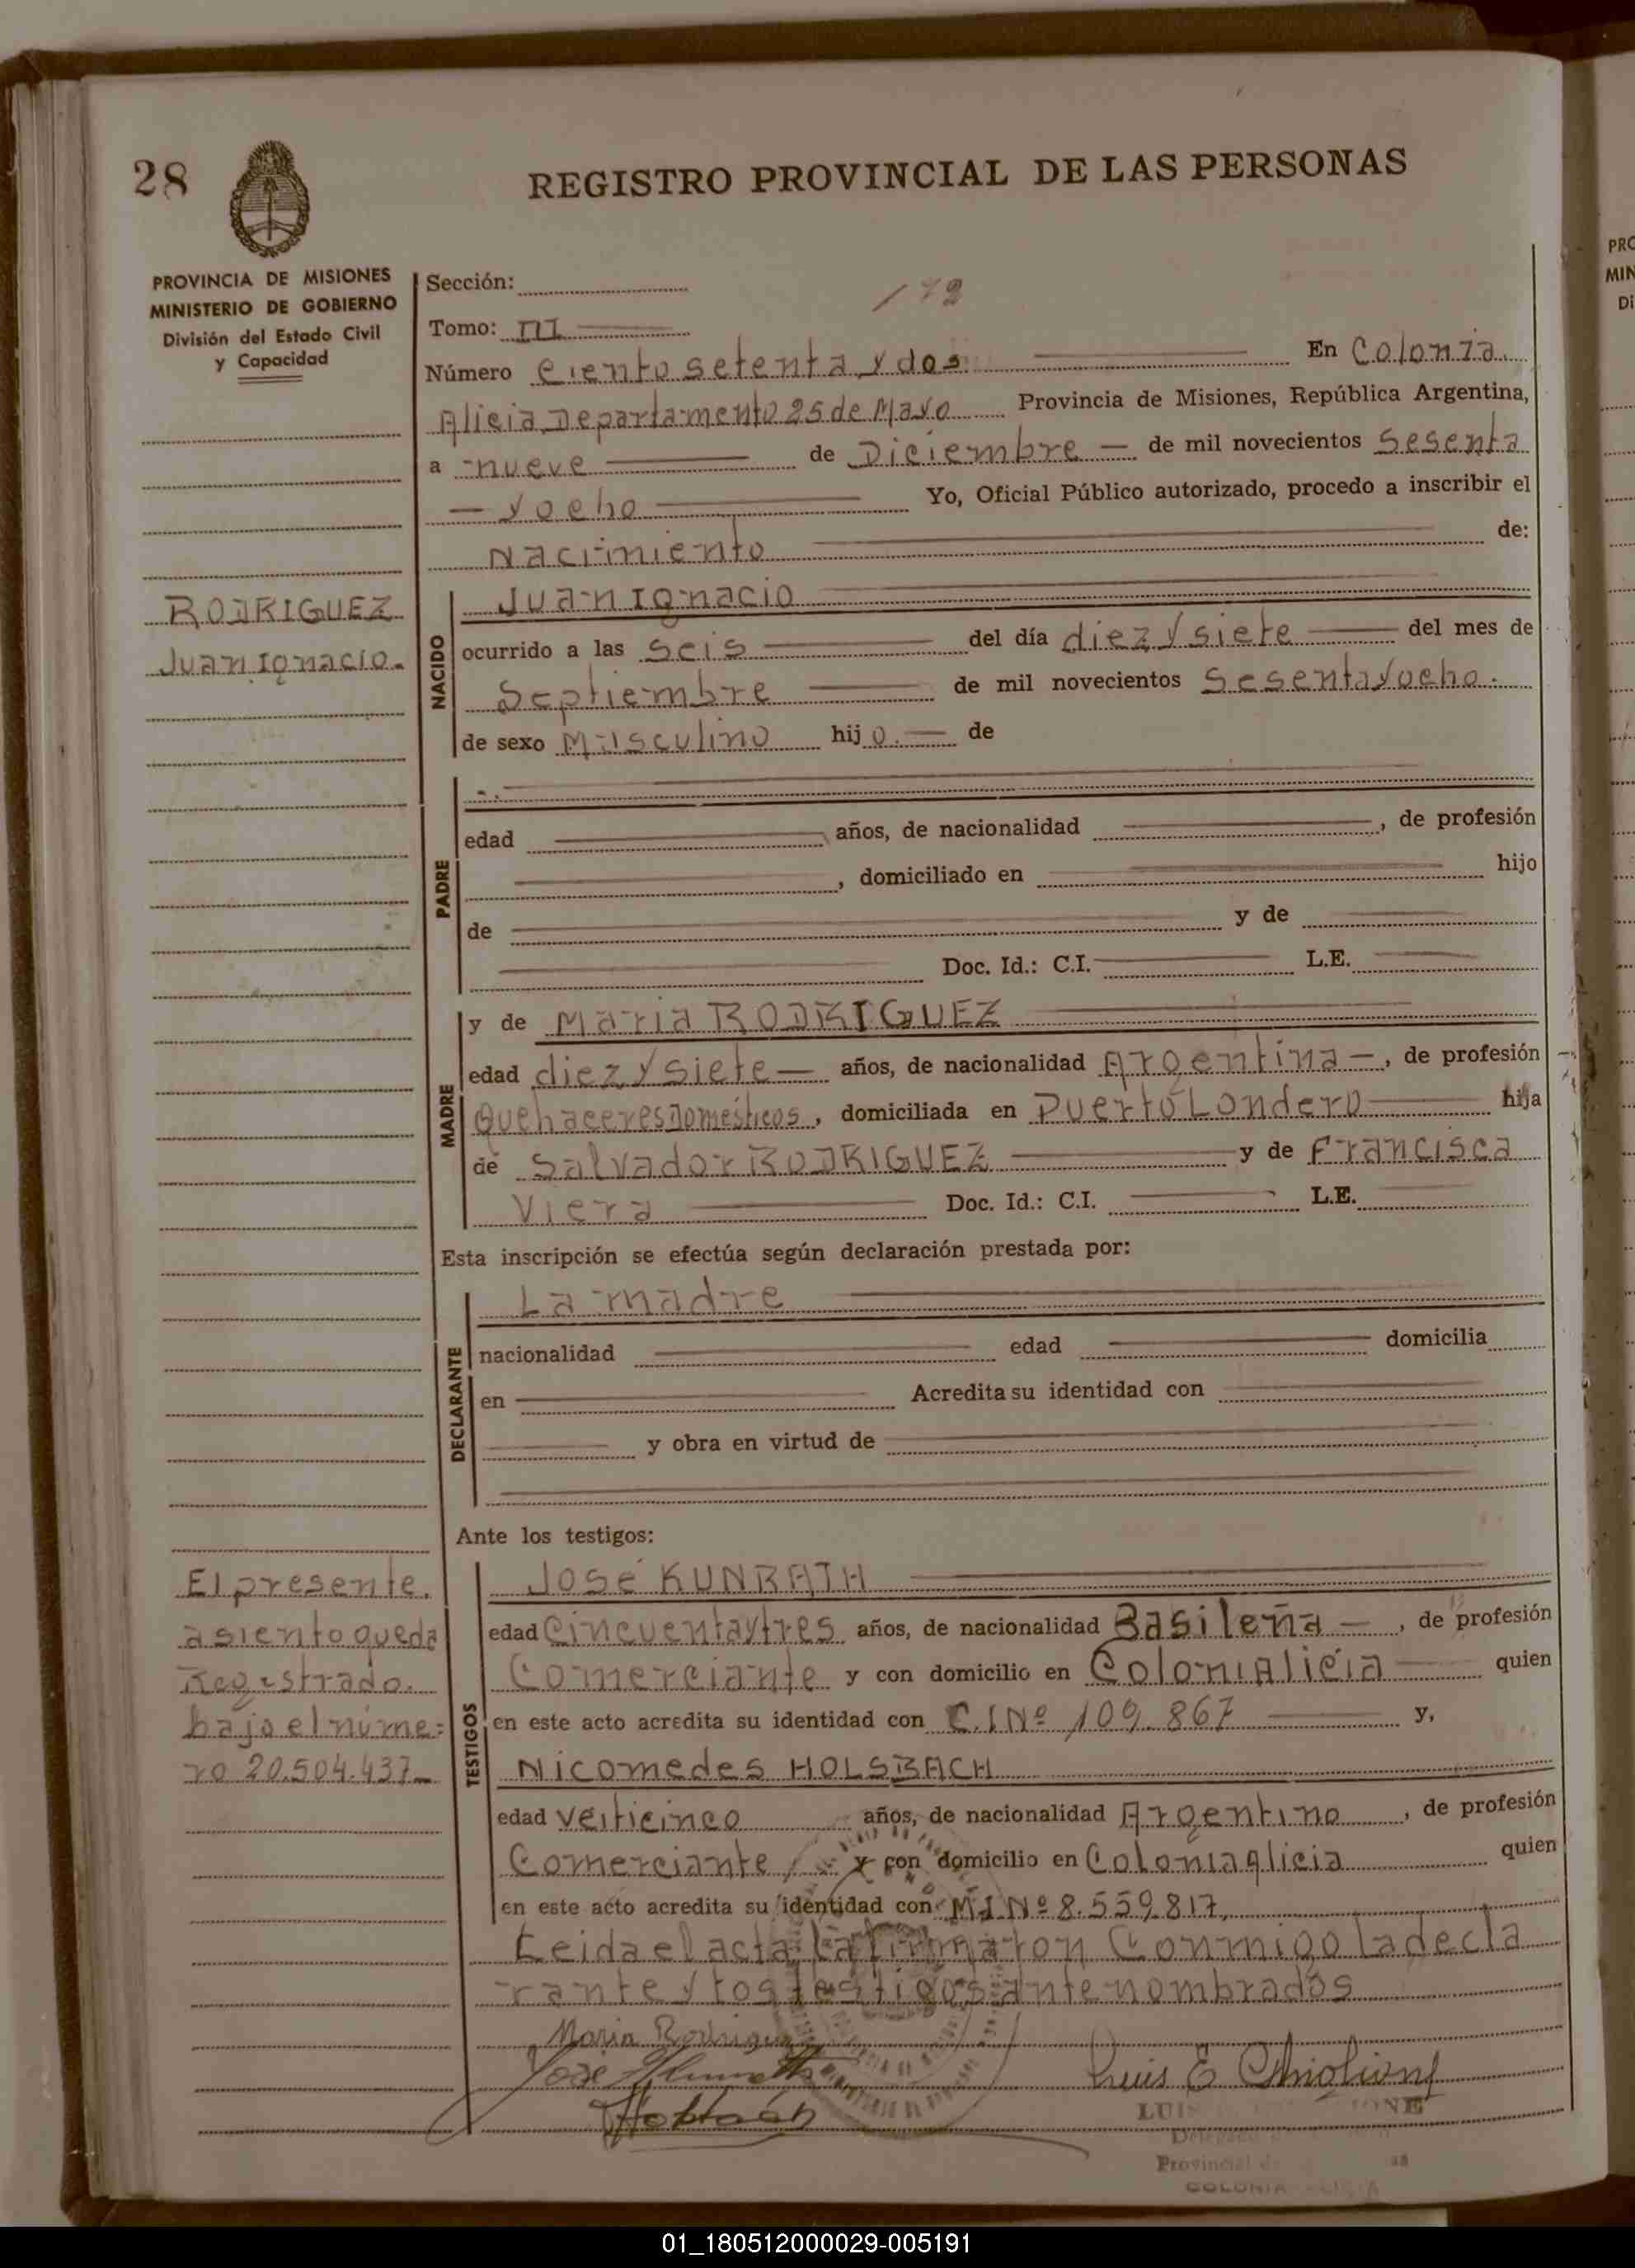 28
REGISTRO PROVINCIAL DE LAS PERSONAS
PROVINCIA DE MISIONES
MINISTERIO DE GOBIERNO
División del Estado Civil
y Capacidad
RODRIGUEZ
Juan Ignacio.
El presente
asiento queda
Registrado.
bajo el núme=
ro 20.504.437
Sección:
172
Tomo: III
Número Ciento setenta y dos En Colonia
Alicia Departamento 25 de Mayo Provincia de Misiones, República Argentina,
a nueve de Diciembre de mil novecientos Sesenta
y ocho Yo, Oficial Público autorizado, procedo a inscribir el
Nacimiento de:
NACIDO
Juan Ignacio
ocurrido a las Seis del día diez y siete del mes de
Septiembre de mil novecientos Sesenta y ocho.
de sexo Masculino hijo. de
PADRE
edad años, de nacionalidad , de profesión
, domiciliado en hijo
de y de
Doc. Id.: C.I. L.E.
MADRE
y de Maria RODRIGUEZ
edad diez y siete años, de nacionalidad Argentina , de profesión
Quehaceres Domésticos, domiciliada en Puerto Londero hija
de Salvador RODRIGUEZ y de Francisca
Viera Doc. Id.: C.I. L.E.
Esta inscripción se efectúa según declaración prestada por:
DECLARANTE
La madre
nacionalidad edad domicilia
en Acredita su identidad con
y obra en virtud de
Ante los testigos:
TESTIGOS
José KUNRATH
edad Cincuenta y tres años, de nacionalidad Basileña , de profesión
Comerciante y con domicilio en Coloni Alicia quien
en este acto acredita su identidad con C.I Nº 109.867 y,
Nicomedes HOLSBACH
edad Veiticinco años, de nacionalidad Argentino , de profesión
Comerciante y con domicilio en Colonia alicia quien
en este acto acredita su identidad con M.I Nº 8.559.817,
Leida el acta la firmaron Conmigo la decla
rante y los testigos antenombrados
Maria Rodriguez
Jose
Luis E
LUIS
Provincial de
COLONIA
PRO
MIN
Di
01_180512000029-005191